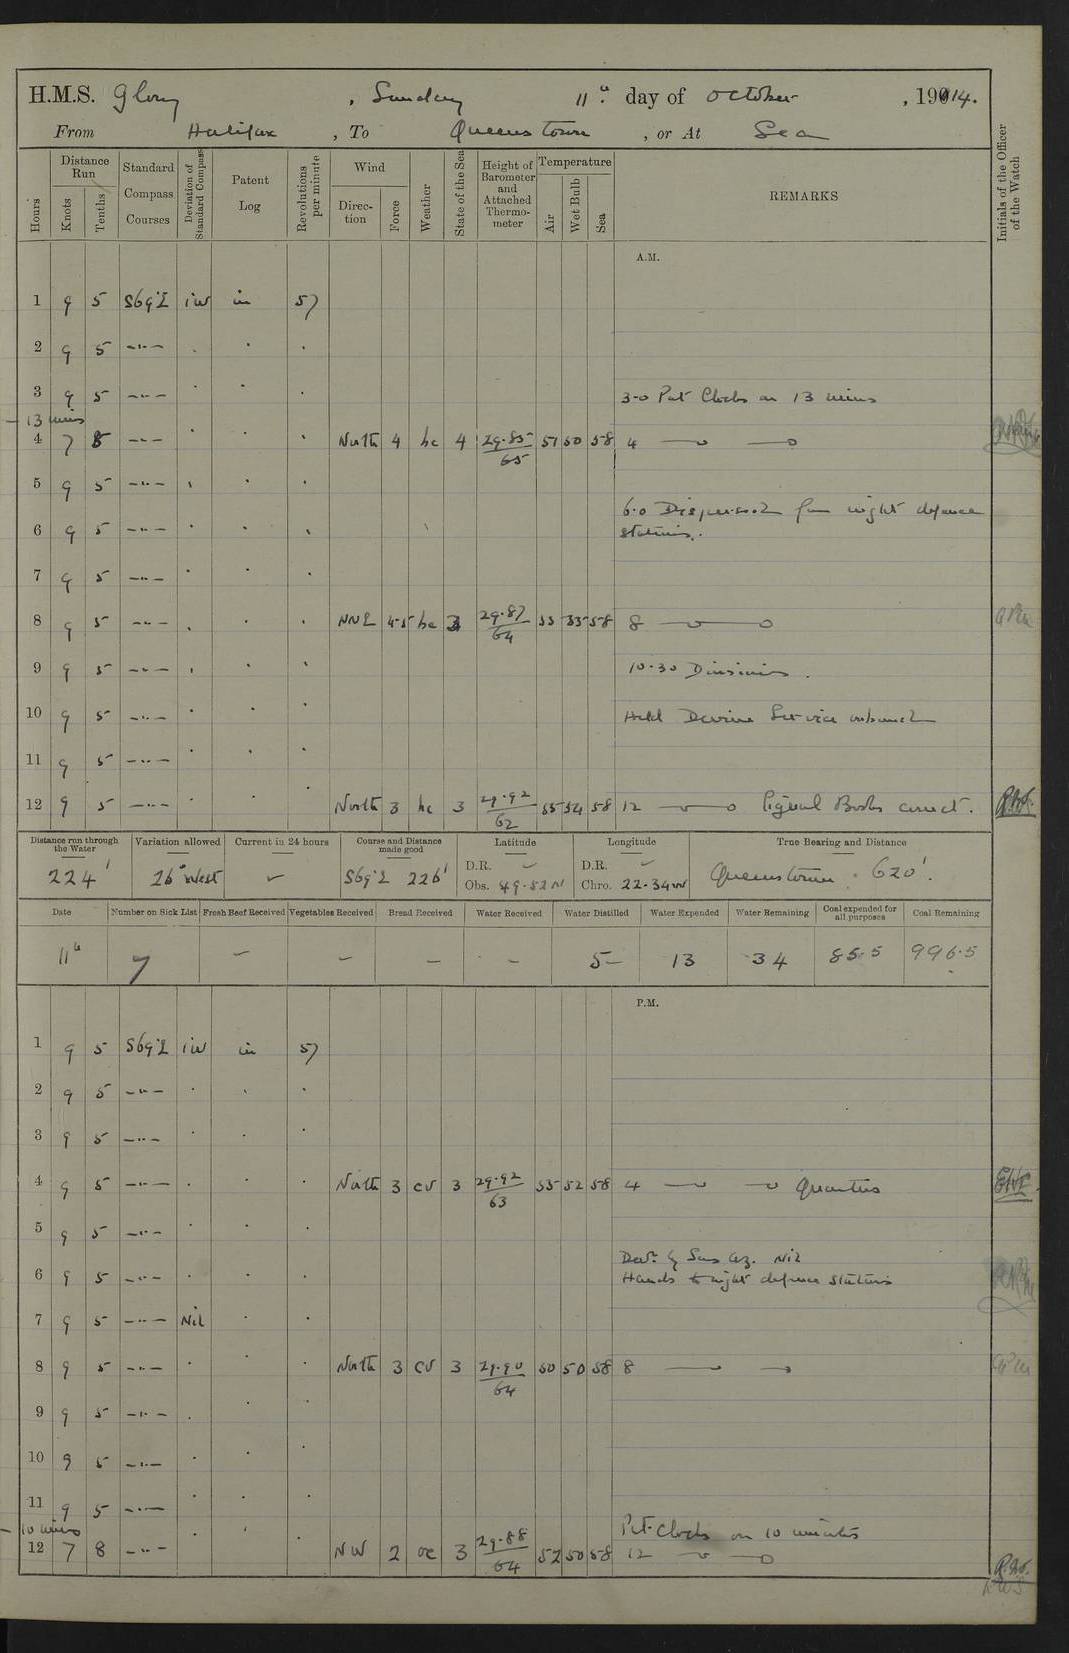 H.M.S. Glory , Sunday 11th day of October , 1914.
From Halifax , To Queenstown , or At Sea
Hours Distance Run Knots Tenths Standard Compass Courses Deviation of Standard Compass Patent Log Revolutions per minute Wind Direction Force Weather State of the Sea Height of Barometer and Attached Thermometer Temperature Air Wet Bulb Sea REMARKS Initials of the Officer of the Watch
A.M.
1 9 5 S69°E 1W in 57
2 9 5 -"-
3 9 5 -"- 3-0 Put Clocks on 13 mins
- 13 mins
4 7 8 -"- North 4 bc 4 29.85/65 51 50 58 4
5 9 5 -"-
6.0 Dispersed from night defence
6 9 5 -"- stations.
7 9 5 -"-
8 9 5 -"- NNE 4-5 bc 3 29.87/64 55 53 58 8
9 9 5 -"- 10.30 Divisions.
10 9 5 -"- Held Devine Service onboard
11 9 5 -"-
12 9 5 -"- North 3 bc 3 29.92/62 55 54 58 12 Signal Books correct.
Distance run through the Water Variation allowed Current in 24 hours Course and Distance made good Latitude Longitude True Bearing and Distance
224' 26° West S69°E 226' D.R. Obs. 49-52N D.R. Chro. 22-34W Queenstown 620'.
Date Number on Sick List Fresh Beef Received Vegetables Received Bread Received Water Received Water Distilled Water Expended Water Remaining Coal expended for all purposes Coal Remaining
11th 7 - - - - 5 13 34 85.5 996.5
P.M.
1 9 5 S69°E 1W in 57
2 9 5 -"-
3 9 5 -"-
4 9 5 -"- North 3 cv 3 29.92/63 55 52 58 4 Quarters
5 9 5 -"-
Devn by Suns Az. Nil
6 9 5 -"- Hands to night defence stations
7 9 5 -"- Nil
8 9 5 -"- North 3 cv 3 29.90/64 50 50 58 8
9 9 5 -"-
10 9 5 -"-
11 9 5 -"-
- 10 mins Put Clocks on 10 minutes
12 7 8 -"- NW 2 oc 3 29.88/64 52 50 58 12